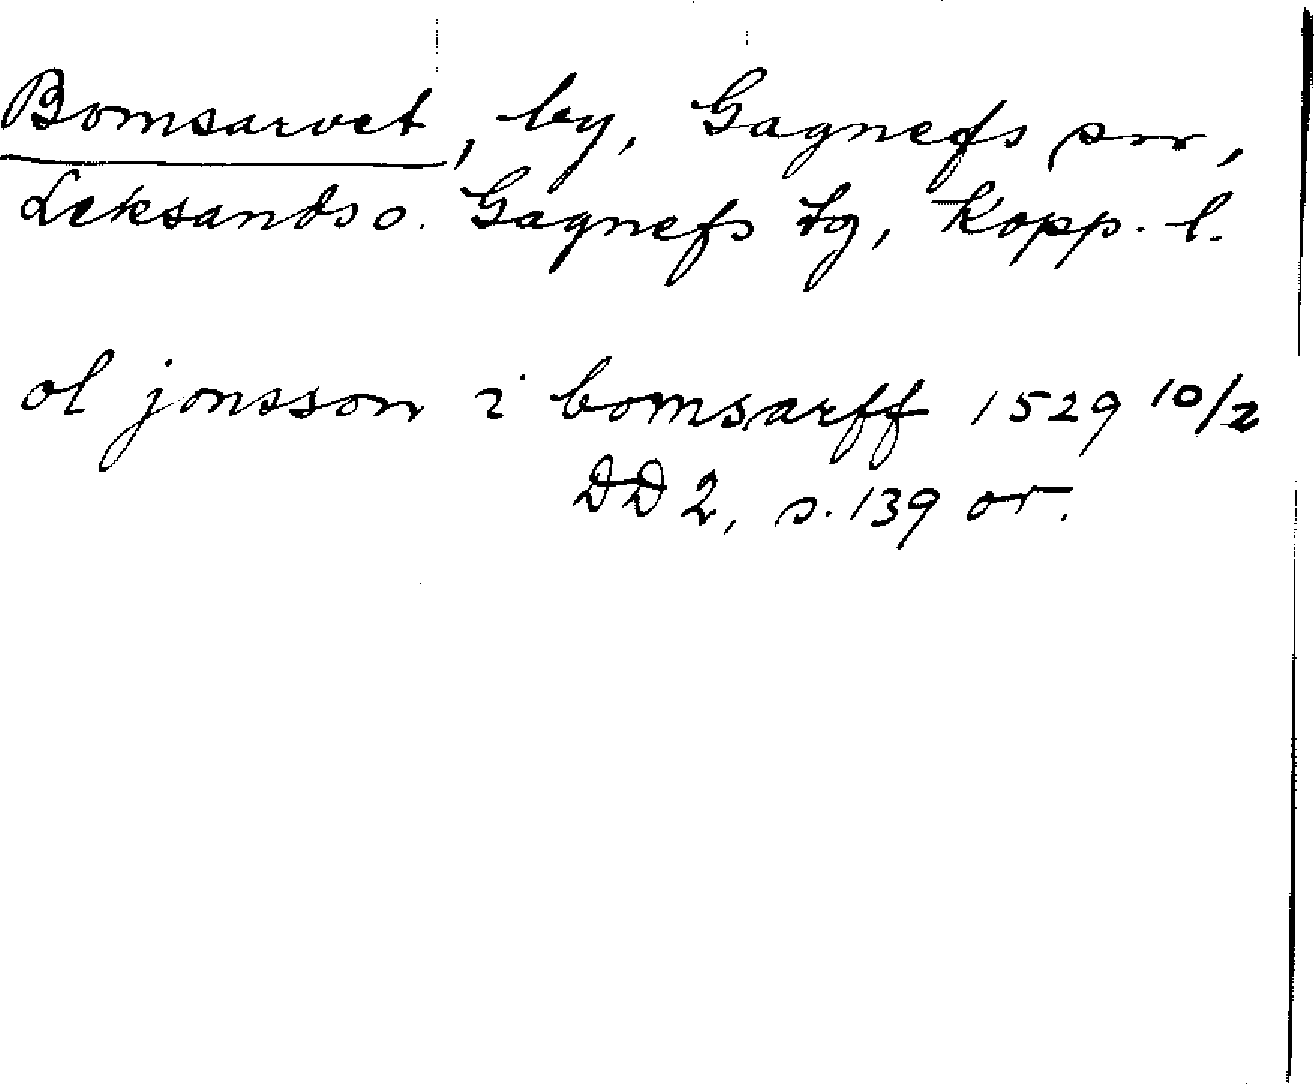 Bomsarvet, by, Gagnefs sn,
Leksands o. Gagnefs tg, Kopp. l.
ol jonsson i bomsarff 1529 10/2
DD 2, s. 139 or.